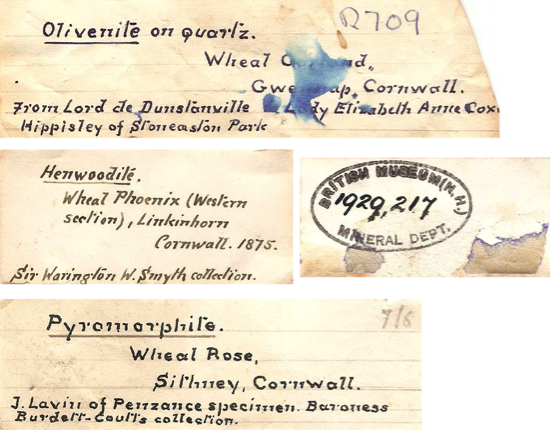 R709
Olivenite on quartz.
Wheal
Gwennap, Cornwall.
From Lord de Dunstanville Lady Elizabeth Anne Cox
Hippisley of Stoneaston Park
Henwoodite.
Wheal Phoenix (Western
section), Linkinhorn
Cornwall. 1875.
Sir Warington W. Smyth collection.
BRITISH MUSEUM (N.H.)
1929,217
MINERAL DEPT.
7/6
Pyromorphite.
Wheal Rose,
Sithney, Cornwall.
J. Lavin of Penzance specimen. Baroness
Burdett-Coutts collection.